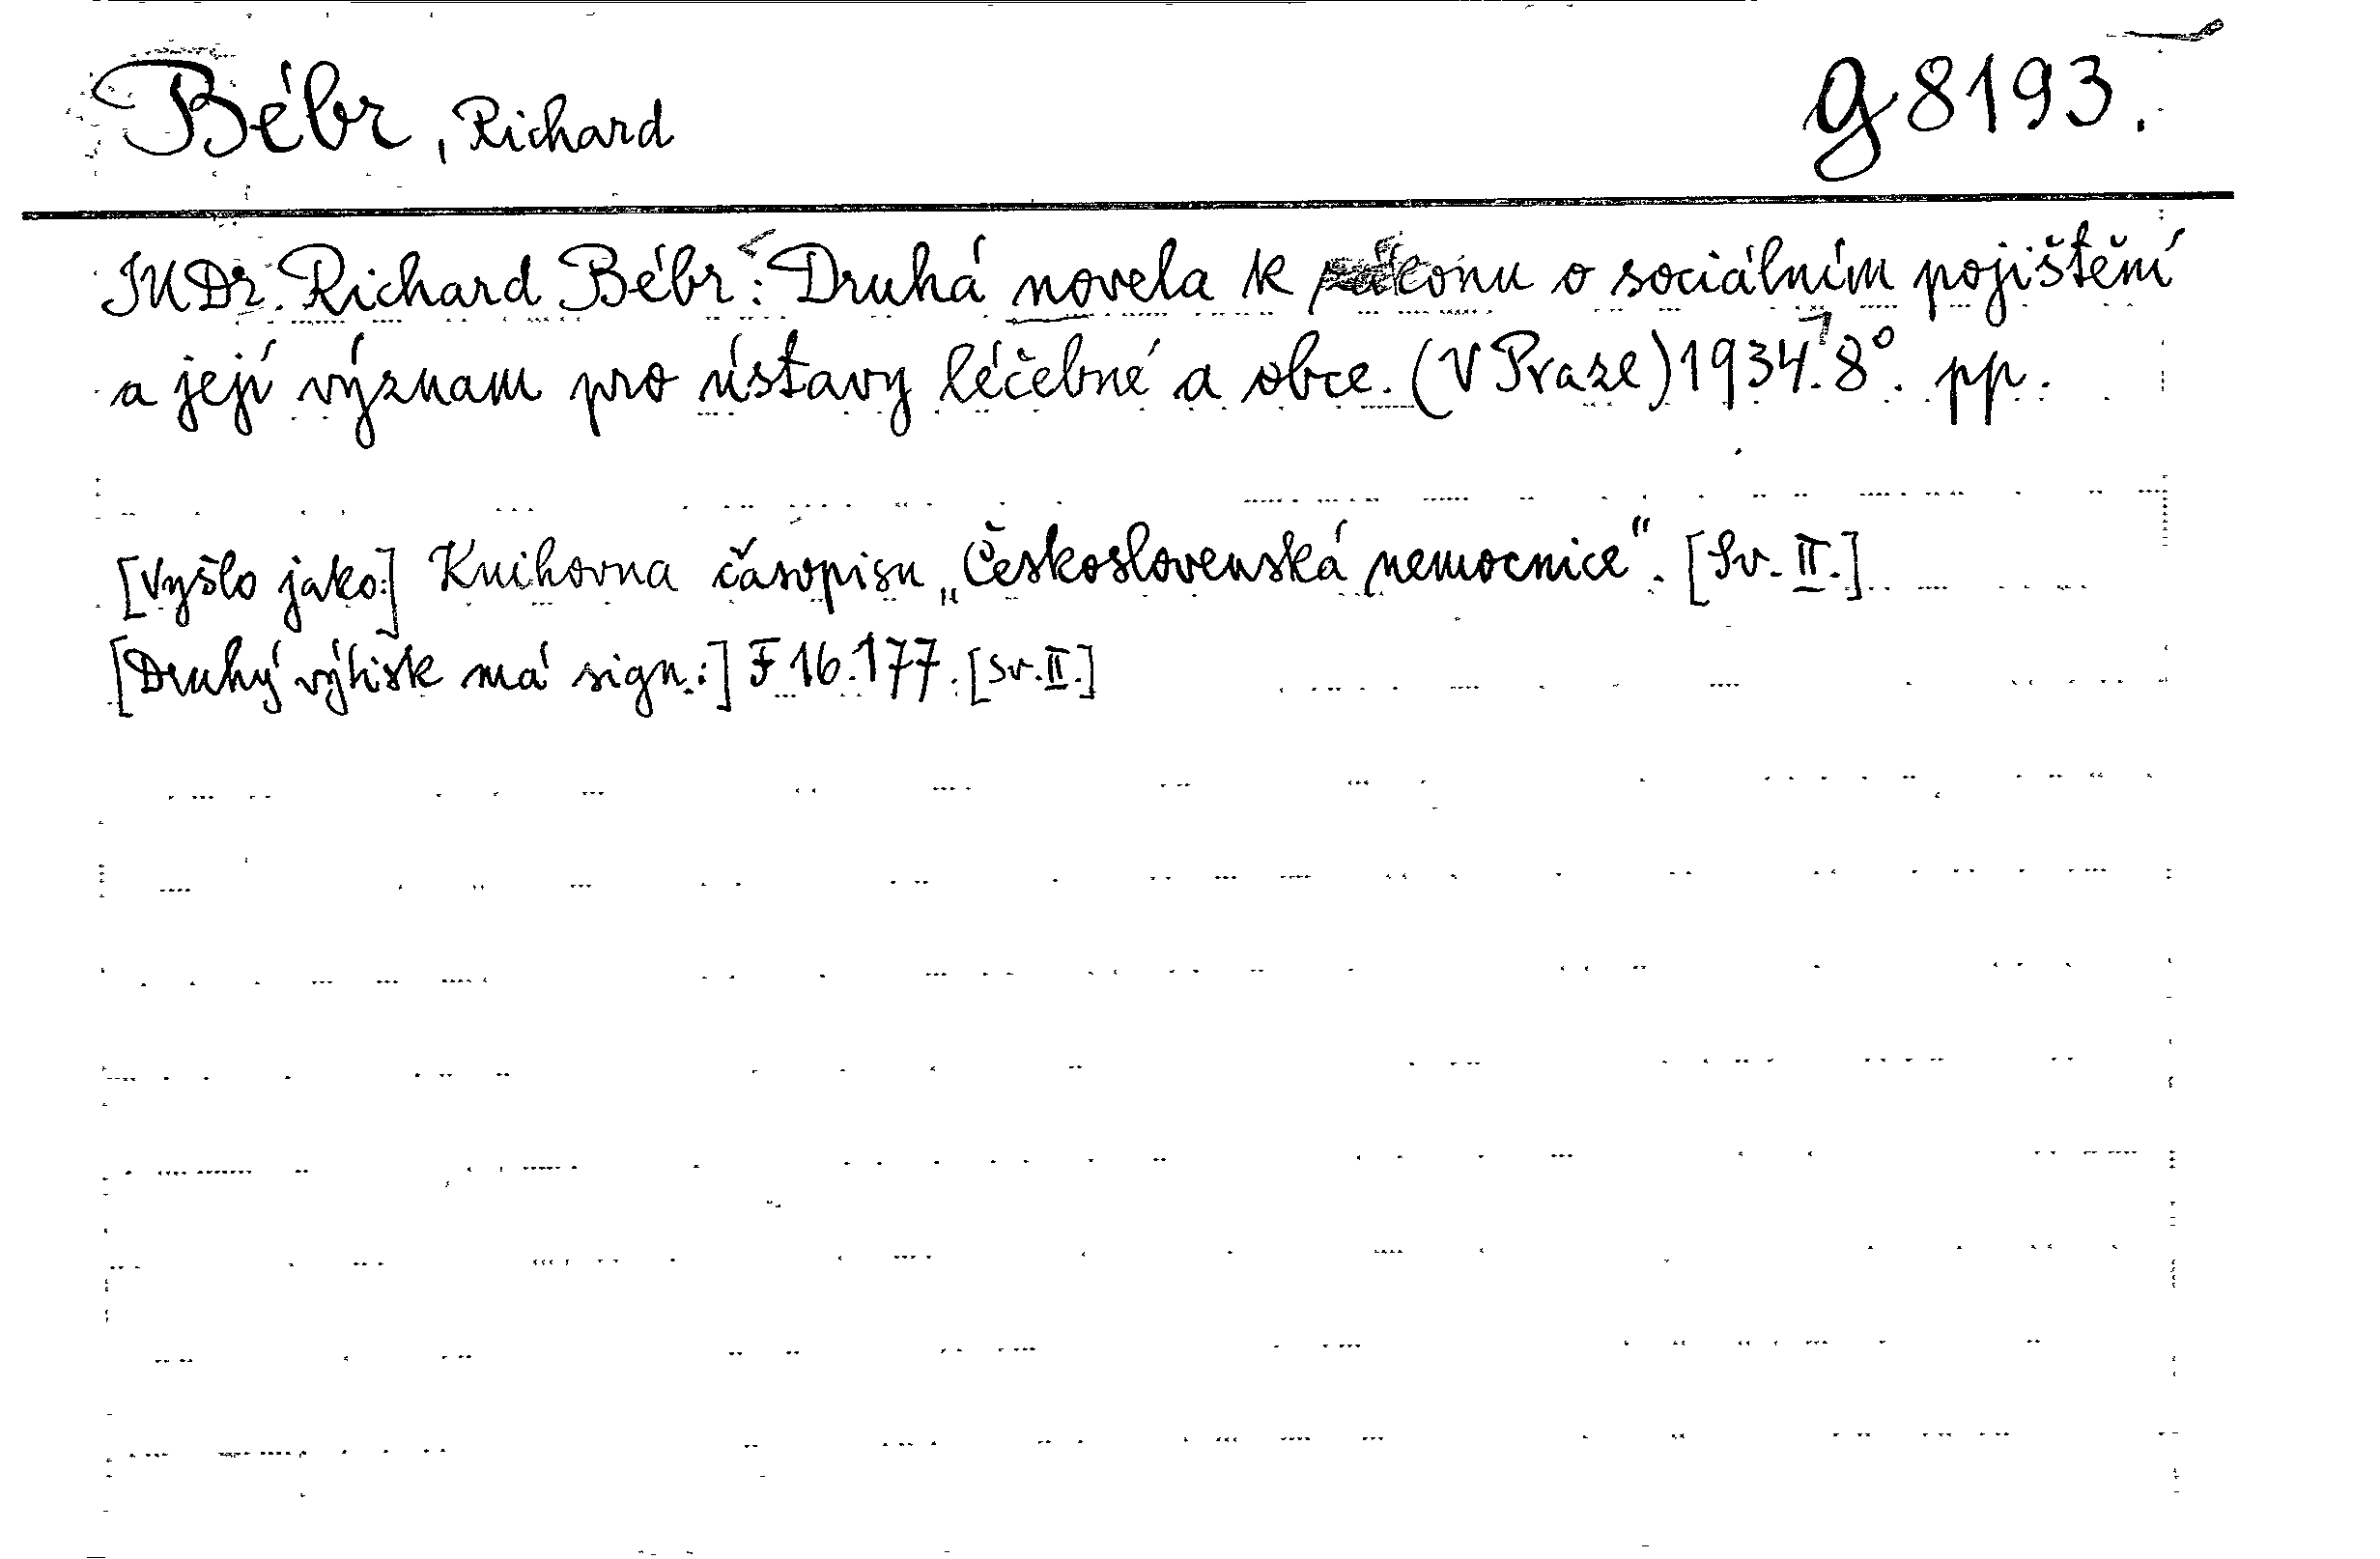 Bébr, Richard
g 8193.
JUDr. Richard Bébr: Druhá novela k zákonu o sociálním pojištění
a její význam pro ústavy léčebné a obce. (V Praze) 1934. 8°. pp.
[Vyšlo jako:] Knihovna časopisu „Československá nemocnice“. [Sv. II.]
[Druhý výtisk má sign.:] F 16.177. [Sv. II.]